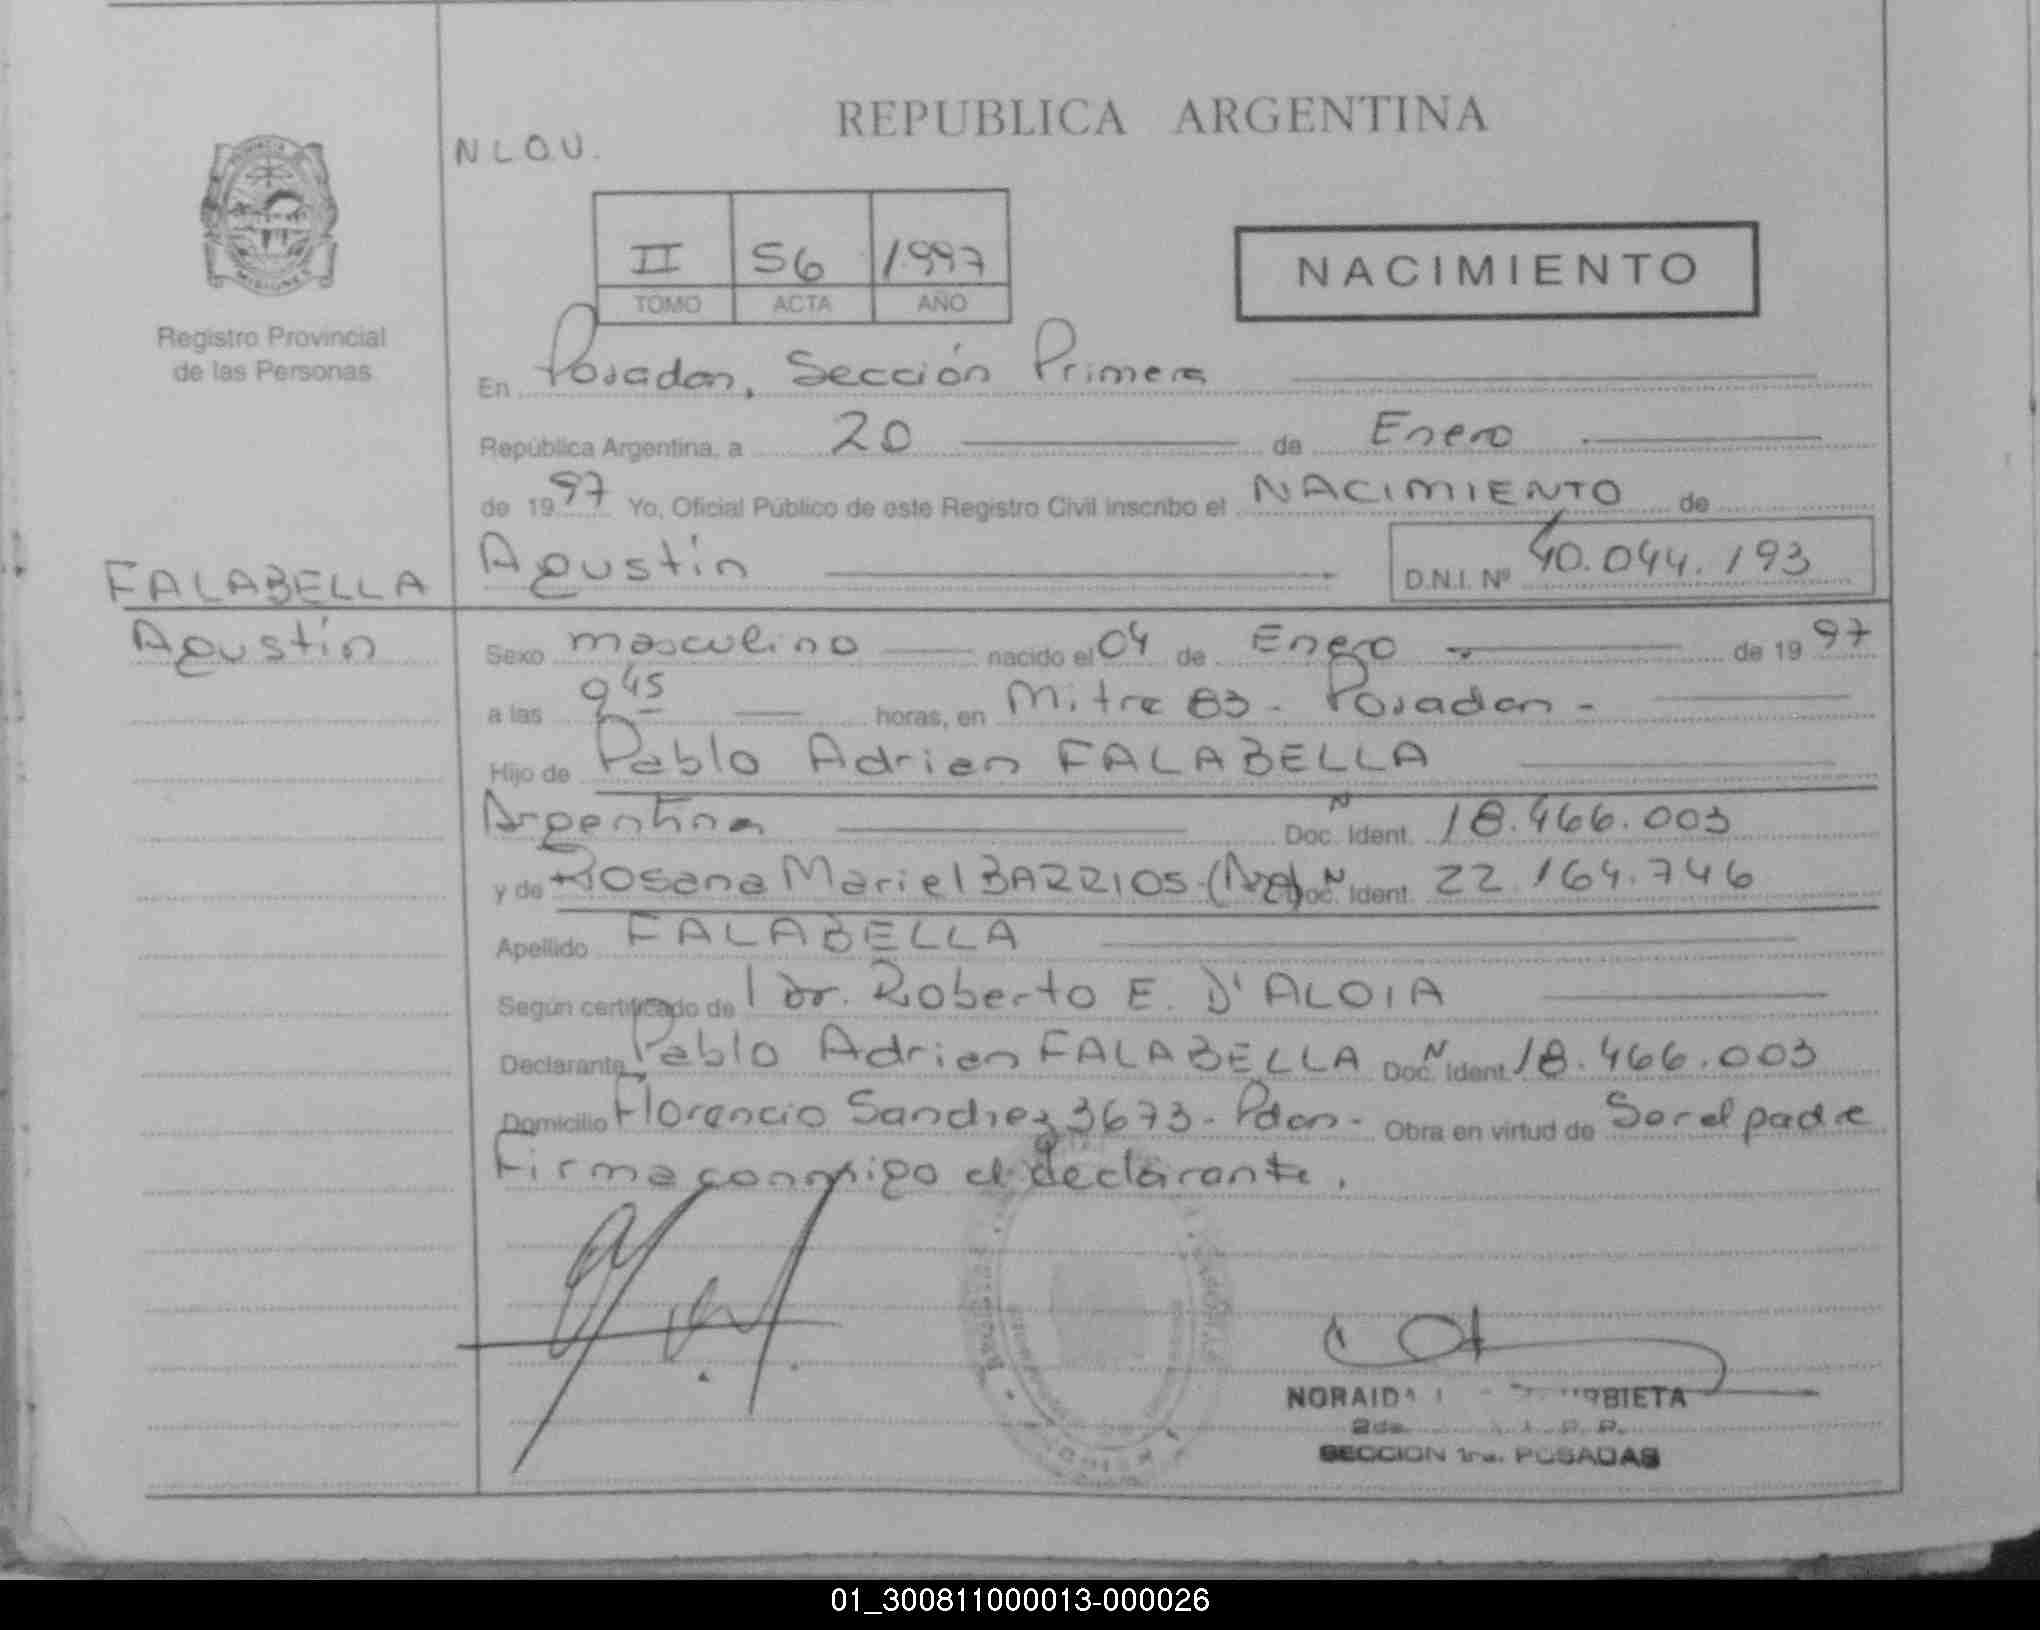 REPUBLICA ARGENTINA
N L O U.
PROVINCIA
MISIONES
Registro Provincial
de las Personas
II 56 1.997
TOMO ACTA AÑO
NACIMIENTO
En Posadas, Sección Primera
República Argentina, a 20 de Enero
de 1997 Yo, Oficial Público de este Registro Civil inscribo el NACIMIENTO de
FALABELLA
Agustín
Agustín D.N.I. Nº 40.044.193
Sexo masculino nacido el 04 de Enero de 1997
a las 9 45 horas, en Mitre 83 - Posadas -
Hijo de Pablo Adrian FALABELLA
Argentina Doc. Ident. N 18.466.003
y de Rosana Mariel BARRIOS - (Arg) Doc. Ident. N 22.164.746
Apellido FALABELLA
Según certificado de l Dr. Roberto E. D'ALOIA
Declarante Pablo Adrian FALABELLA Doc. Ident. N 18.466.003
Domicilio Florencio Sanchez 3673 - Pdas - Obra en virtud de Ser el padre
Firma conmigo el declarante.
NORAIDA BIETA
2da R. P.
SECCION 1ra. POSADAS
01_300811000013-000026